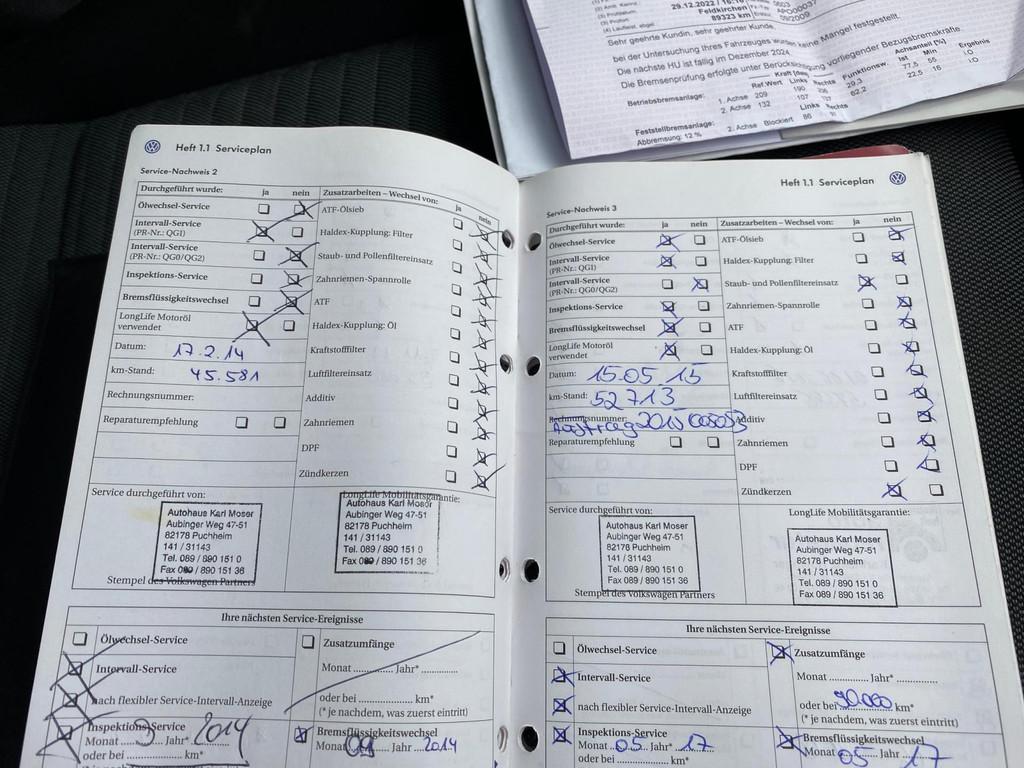 29.12.2022 / 16:1
Feldkirchen
89323 km
09/2009
Sehr geehrte Kundin, sehr geehrter Kunde,
bei der Untersuchung Ihres Fahrzeuges wurden keine Mängel festgestellt.
Die nächste HU ist fällig im Dezember 2024.
Die Bremsenprüfung erfolgte unter Berücksichtigung vorliegender Bezugsbremskräfte.
Achsanteil [%] Ergebnis
Ref.Wert Links Rechts Funktionsw. Ist Min
Betriebsbremsanlage: 1. Achse 209 190 29.3 77,5 55 i.O
2. Achse 132 107 62.2 22,5 16 i.O
Links Rechts
Feststellbremsanlage: 2. Achse Blockiert 86
Abbremsung: 12 %
Heft 1.1 Serviceplan
Service-Nachweis 2
Durchgeführt wurde: ja nein Zusatzarbeiten – Wechsel von: ja nein
Ölwechsel-Service ATF-Ölsieb
Intervall-Service
(PR-Nr.: QG1) Haldex-Kupplung: Filter
Intervall-Service
(PR-Nr.: QG0/QG2) Staub- und Pollenfiltereinsatz
Inspektions-Service Zahnriemen-Spannrolle
Bremsflüssigkeitswechsel ATF
LongLife Motoröl
verwendet Haldex-Kupplung: Öl
Datum: 17.2.14 Kraftstofffilter
km-Stand: 45.581 Luftfiltereinsatz
Rechnungsnummer: Additiv
Reparaturempfehlung Zahnriemen
DPF
Zündkerzen
Service durchgeführt von: LongLife Mobilitätsgarantie:
Autohaus Karl Moser
Aubinger Weg 47-51
82178 Puchheim
141 / 31143
Tel. 089 / 890 151 0
Fax 089 / 890 151 36
Autohaus Karl Moser
Aubinger Weg 47-51
82178 Puchheim
141 / 31143
Tel. 089 / 890 151 0
Fax 089 / 890 151 36
Stempel des Volkswagen Partners
Ihre nächsten Service-Ereignisse
Ölwechsel-Service Zusatzumfänge
Intervall-Service Monat ........... Jahr* .............
nach flexibler Service-Intervall-Anzeige oder bei .................... km*
(* je nachdem, was zuerst eintritt)
Inspektions-Service Bremsflüssigkeitswechsel
Monat 3 Jahr* 2014 Monat 09 Jahr 2014
oder bei .................. km*
Heft 1.1 Serviceplan
Service-Nachweis 3
Durchgeführt wurde: ja nein Zusatzarbeiten – Wechsel von: ja nein
Ölwechsel-Service ATF-Ölsieb
Intervall-Service
(PR-Nr.: QG1) Haldex-Kupplung: Filter
Intervall-Service
(PR-Nr.: QG0/QG2) Staub- und Pollenfiltereinsatz
Inspektions-Service Zahnriemen-Spannrolle
Bremsflüssigkeitswechsel ATF
LongLife Motoröl
verwendet Haldex-Kupplung: Öl
Datum: 15.05.15 Kraftstofffilter
km-Stand: 52713 Luftfiltereinsatz
Rechnungsnummer: Auftrag Additiv
Reparaturempfehlung Zahnriemen
DPF
Zündkerzen
Service durchgeführt von: LongLife Mobilitätsgarantie:
Autohaus Karl Moser
Aubinger Weg 47-51
82178 Puchheim
141 / 31143
Tel. 089 / 890 151 0
Fax 089 / 890 151 36
Autohaus Karl Moser
Aubinger Weg 47-51
82178 Puchheim
141 / 31143
Tel. 089 / 890 151 0
Fax 089 / 890 151 36
Stempel des Volkswagen Partners
Ihre nächsten Service-Ereignisse
Ölwechsel-Service Zusatzumfänge
Intervall-Service Monat ........... Jahr* .............
nach flexibler Service-Intervall-Anzeige oder bei 90.000 km*
(* je nachdem, was zuerst eintritt)
Inspektions-Service Bremsflüssigkeitswechsel
Monat 05 Jahr* 17 Monat 05 Jahr 17
oder bei .................. km*